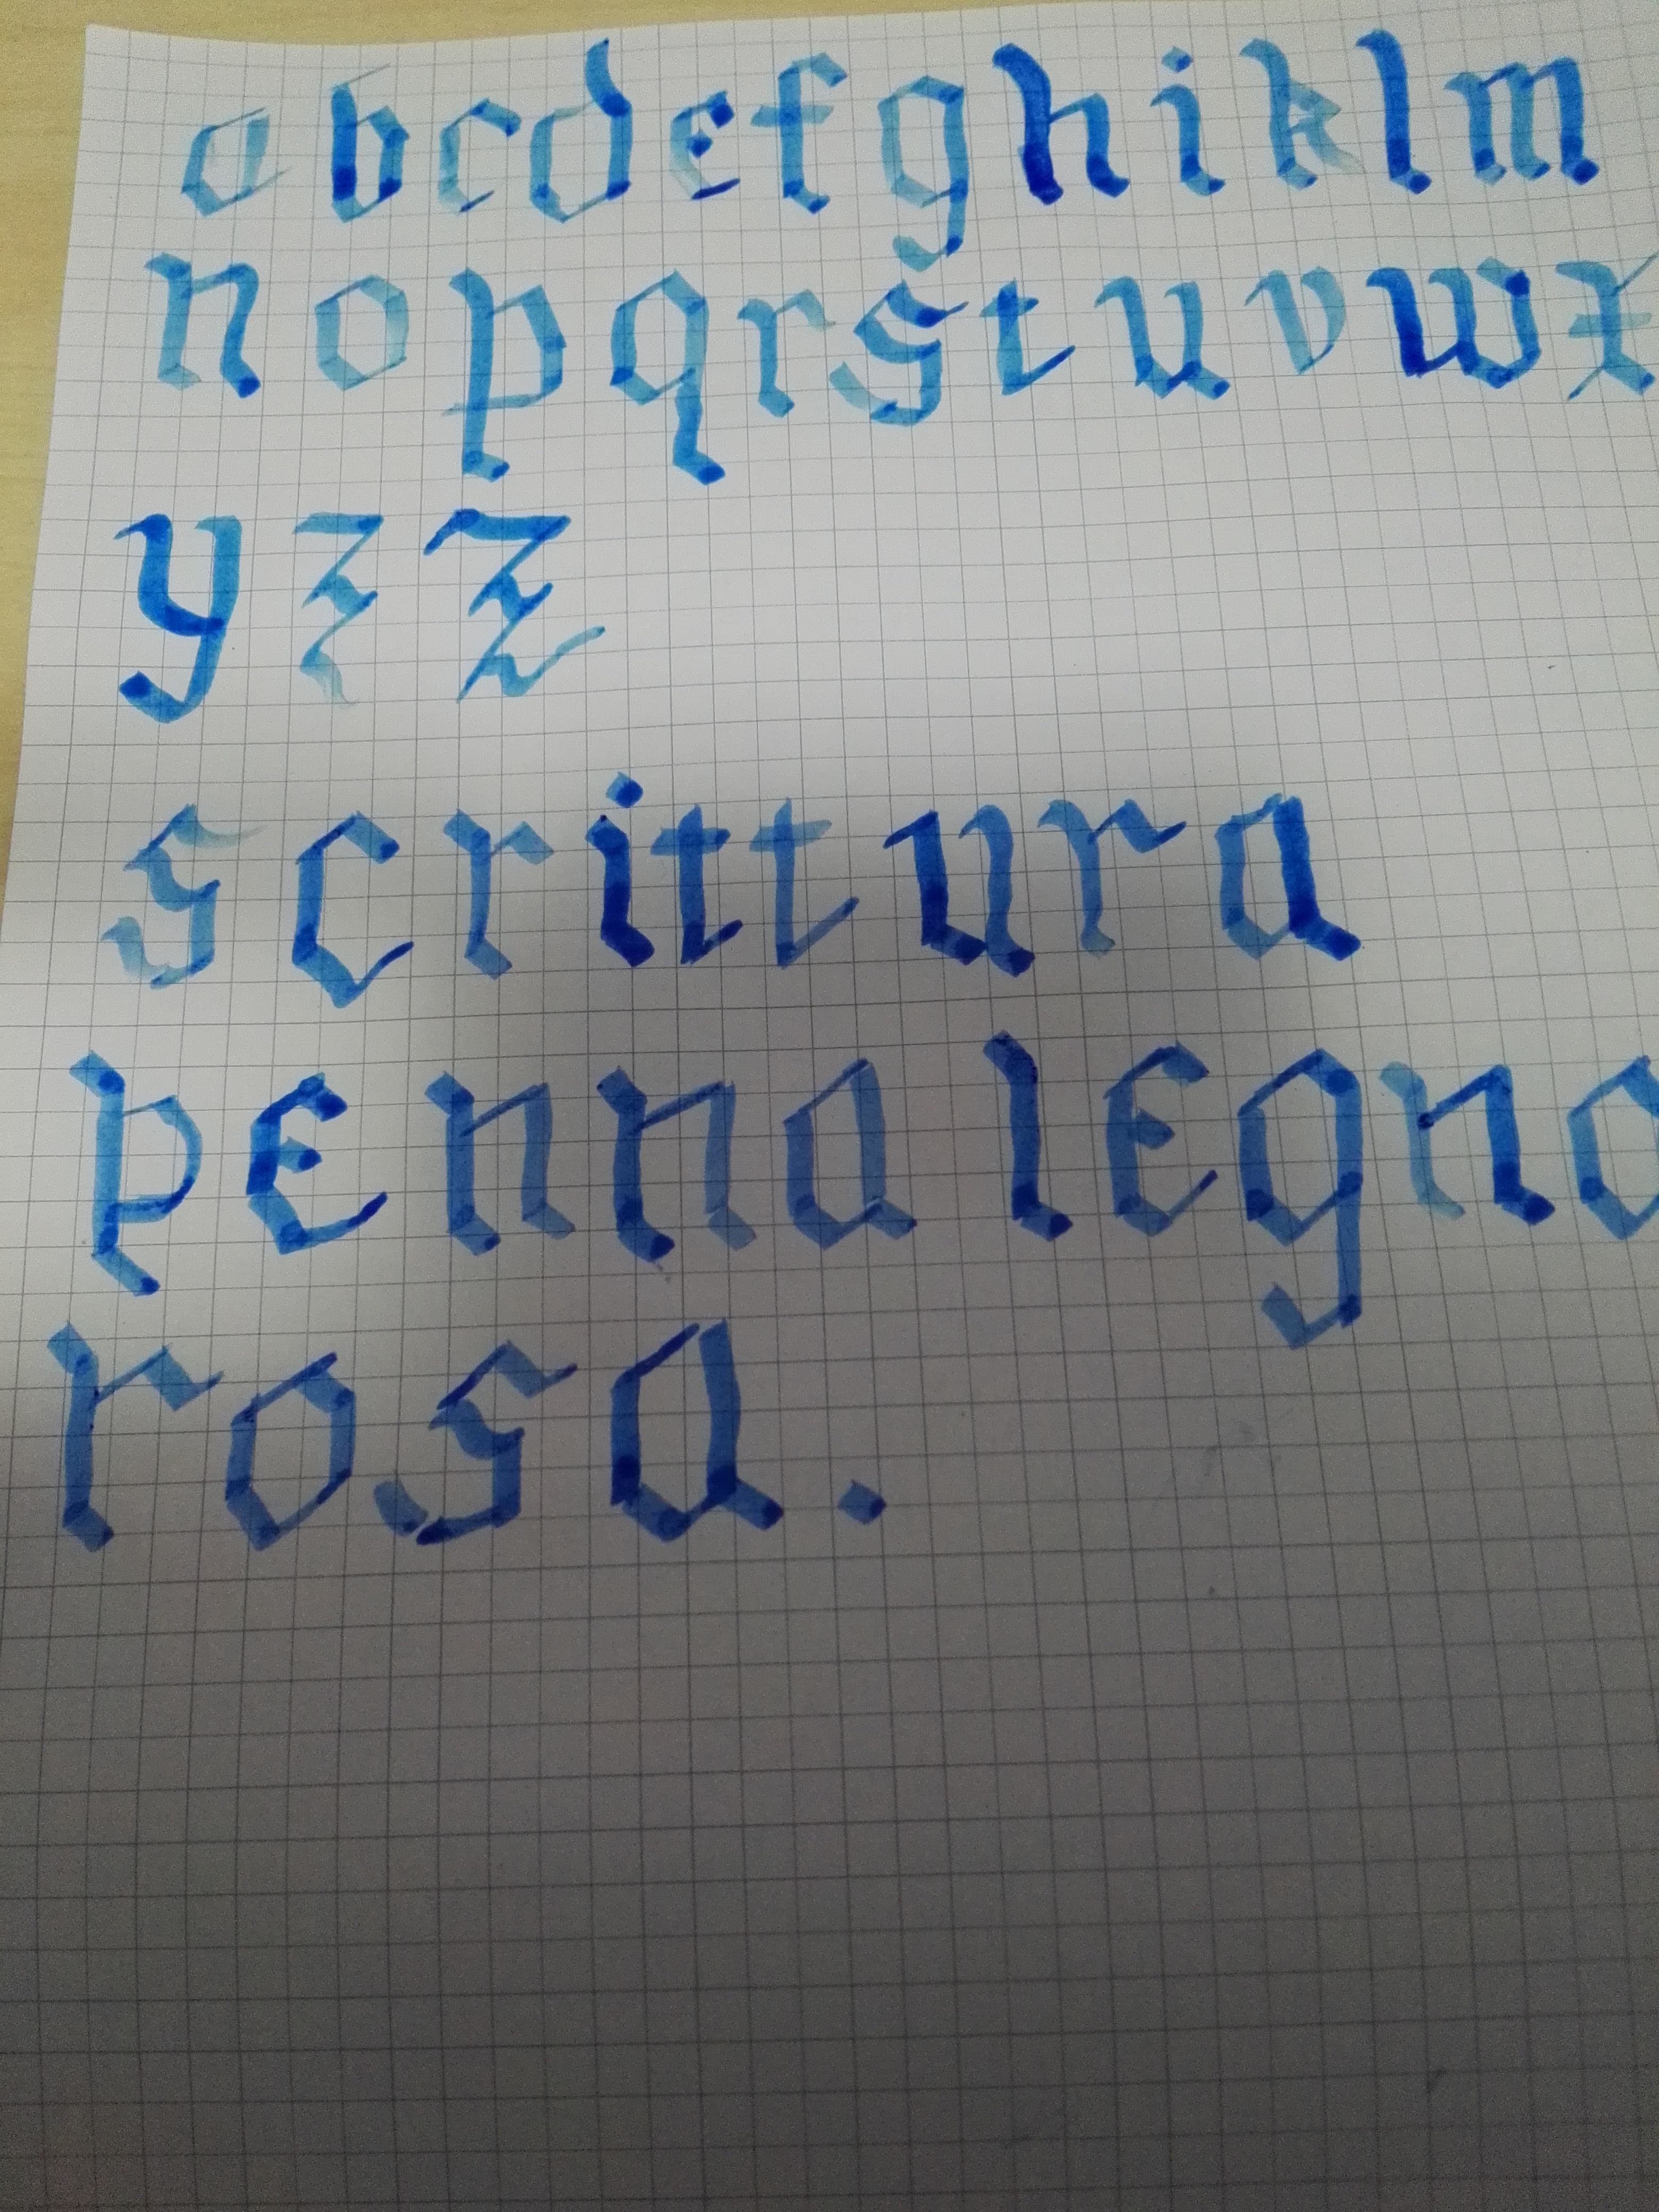 abcdefghiklm
nopqrstuvwx
yzz
scrittura
penna legno
rosa.